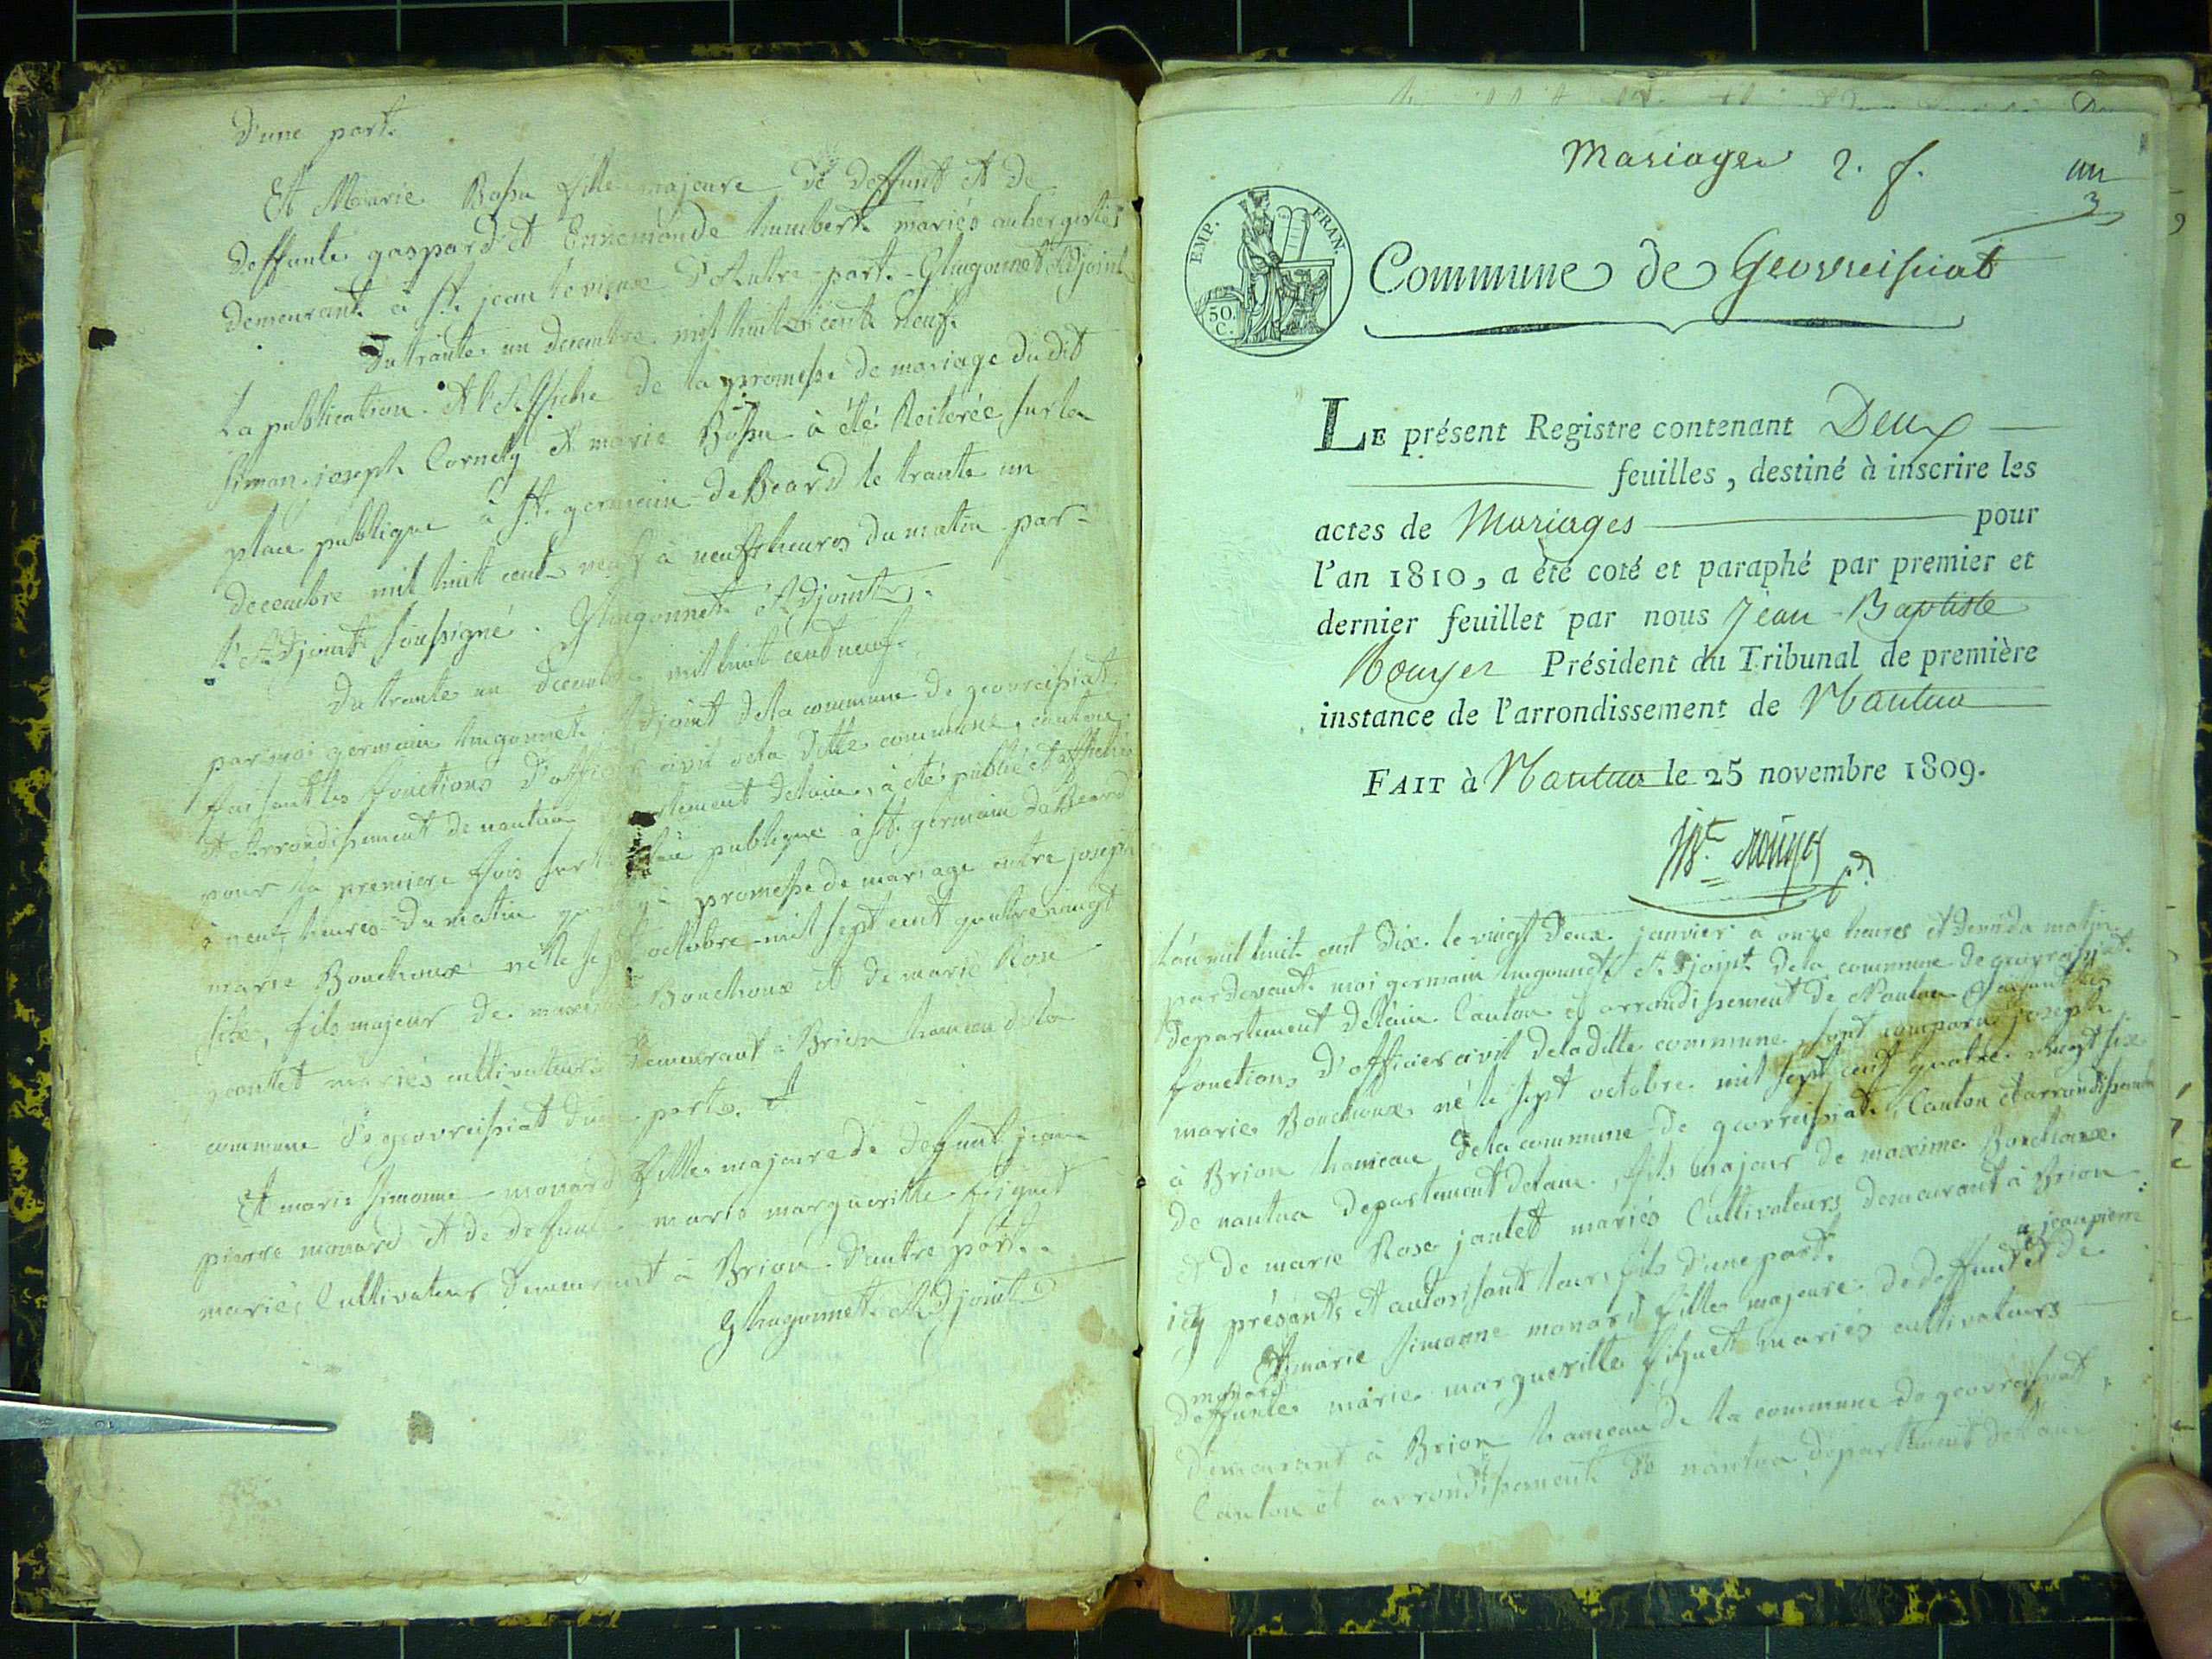 D'une part.
Et Marie Bossu fille majeure de deffunt et de
deffunte gaspard et Ennemonde humbert mariés aubergistes
demeurant à St. jean le vieux D'Autre part. GHugonnet Adjoint
Du trante un decembre mil huit cent neuf.
La publication et l'Affiche de la promesse de mariage du dit
Simon joseph Cornely et marie Bossu à été Reiterée sur la
place publique à St. germain de Beard le trante un
decembre mil huit cent neuf à neuf heures du matin par
l'Adjoint soussigné. GHugonnet Adjoint.
Du trante un decembre mil huit cent neuf.
par moi germain hugonnet Adjoint de la commune de geovreissiat
faisant les fonctions d'officier civil de la ditte commune, canton
et Arrondissement de nantua departement de l'ain, à été publié et affiché
pour la premiere fois sur la place publique à St. germain de Beard
à neuf heures du matin promesse de mariage entre joseph
marie Bouchoux né le sept octobre mil sept cent quatre vingt
six, fils majeur de maxime Bouchoux et de marie Rose
jantet mariés cultivateurs demeurant à Brion hameau de la
commune de geovreissiat d'une part. Et
Et marie simonne monard fille majeure de defunt jean
pierre monard et de defunte marie margueritte figuet
mariés Cultivateurs demeurant à Brion D'autre part.
GHugonnet Adjoint
Mariages 2. f.
un
3
EMP. FRAN.
50.
C.
Commune de Geovreissiat
LE présent Registre contenant Deux
feuilles, destiné à inscrire les
actes de Mariages pour
l'an 1810, a été coté et paraphé par premier et
dernier feuillet par nous Jean-Baptiste
Rouyer Président du Tribunal de première
instance de l'arrondissement de Nantua
FAIT à Nantua le 25 novembre 1809.
JBte Rouyer
L'an mil huit cent dix le vingt deux janvier à onze heures et demi du matin
pardevant moi germain hugonnet Adjoint de la commune de geovreissiat
departement de l'ain Canton et arrondissement de Nantua faisant les
fonctions D'officier civil de la ditte commune sont comparu joseph
marie Bouchoux né le sept octobre mil sept cent quatre vingt six
à Brion hameau de la commune de geovreissiat, Canton et arrondissement
de nantua departement de l'ain, fils majeur de maxime Bouchoux
et de marie Rose jantet mariés Cultivateurs demeurant à Brion
icy présants et autorisant leur fils d'une part.
jean pierre
Et marie simonne monard fille majeure de deffunt et de
monard
deffunte marie margueritte figuet mariés cultivateurs
demeurant à Brion hameau de la commune de geovreissiat
Canton et arrondissement de nantua departement de l'ain